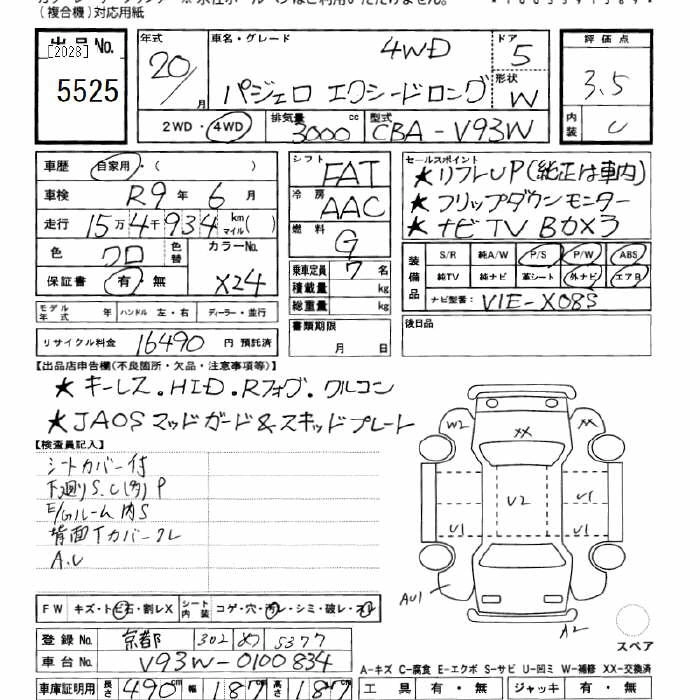 (複合機)対応用紙
出品No. 年式 車名・グレード 4WD ドア 5 評価点
[2023] 20/月 パジェロ エクシードロング 形状 W 3.5
5525 2WD・4WD 排気量 3000 cc 型式 CBA-V93W 内装 C
車歴 自家用・( ) シフト FAT セールスポイント
★リフレUP(純正は車内)
車検 R9年 6月 冷房 AAC ★フリップダウンモニター
走行 15万4千934 km マイル( ) 燃料 G ★ナビTV BOX3
色 クロ 色替 カラーNo. X24 乗車定員 7名 装備品 S/R 純A/W P/S P/W ABS
保証書 有・無 積載量 kg 純TV 純ナビ 革シート 外ナビ エアB
総重量 kg ナビ型番: VIE-X08S
モデル年式 年 ハンドル 左・右 ディーラー・並行 書類期限 月 日 後日品
リサイクル料金 16490 円 預託済
【出品店申告欄(不良箇所・欠品・注意事項等)】
★キーレス.HID.Rフォグ.クルコン
★JAOSマッドガード&スキッドプレート
【検査員記入】
シートカバー付
下廻りS.C(多)P
E/Gルーム内S
背面Tカバークレ
A.U
W2 XX
U2 U1
U1 U1
AU1 A2
スペア
FW キズ・トビ石・割レX シート内装 コゲ・穴・汚レ・シミ・破レ・スレ
登録No. 京都 302 め 5377
車台No. V93W-0100834
A-キズ C-腐食 E-エクボ S-サビ U-凹ミ W-補修 XX-交換済
車庫証明用 長さ 490 cm 幅 187 cm 高さ 187 cm 工具 有・無 ジャッキ 有・無